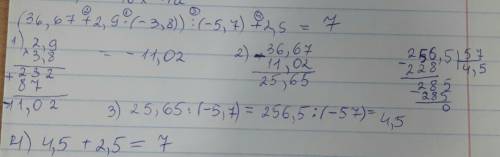 (36,67 + 2,9 · (-3,8)) : (-5,7) + 2,5 = 7
1) 2,9
× 3,8
+ 232
87
-11,02
= -11,02
2) -36,67
11,02
25,65
-256,5 | 57
228 | 4,5
-285
285
0
3) 25,65 : (-5,7) = 256,5 : (-57) = 4,5
4) 4,5 + 2,5 = 7